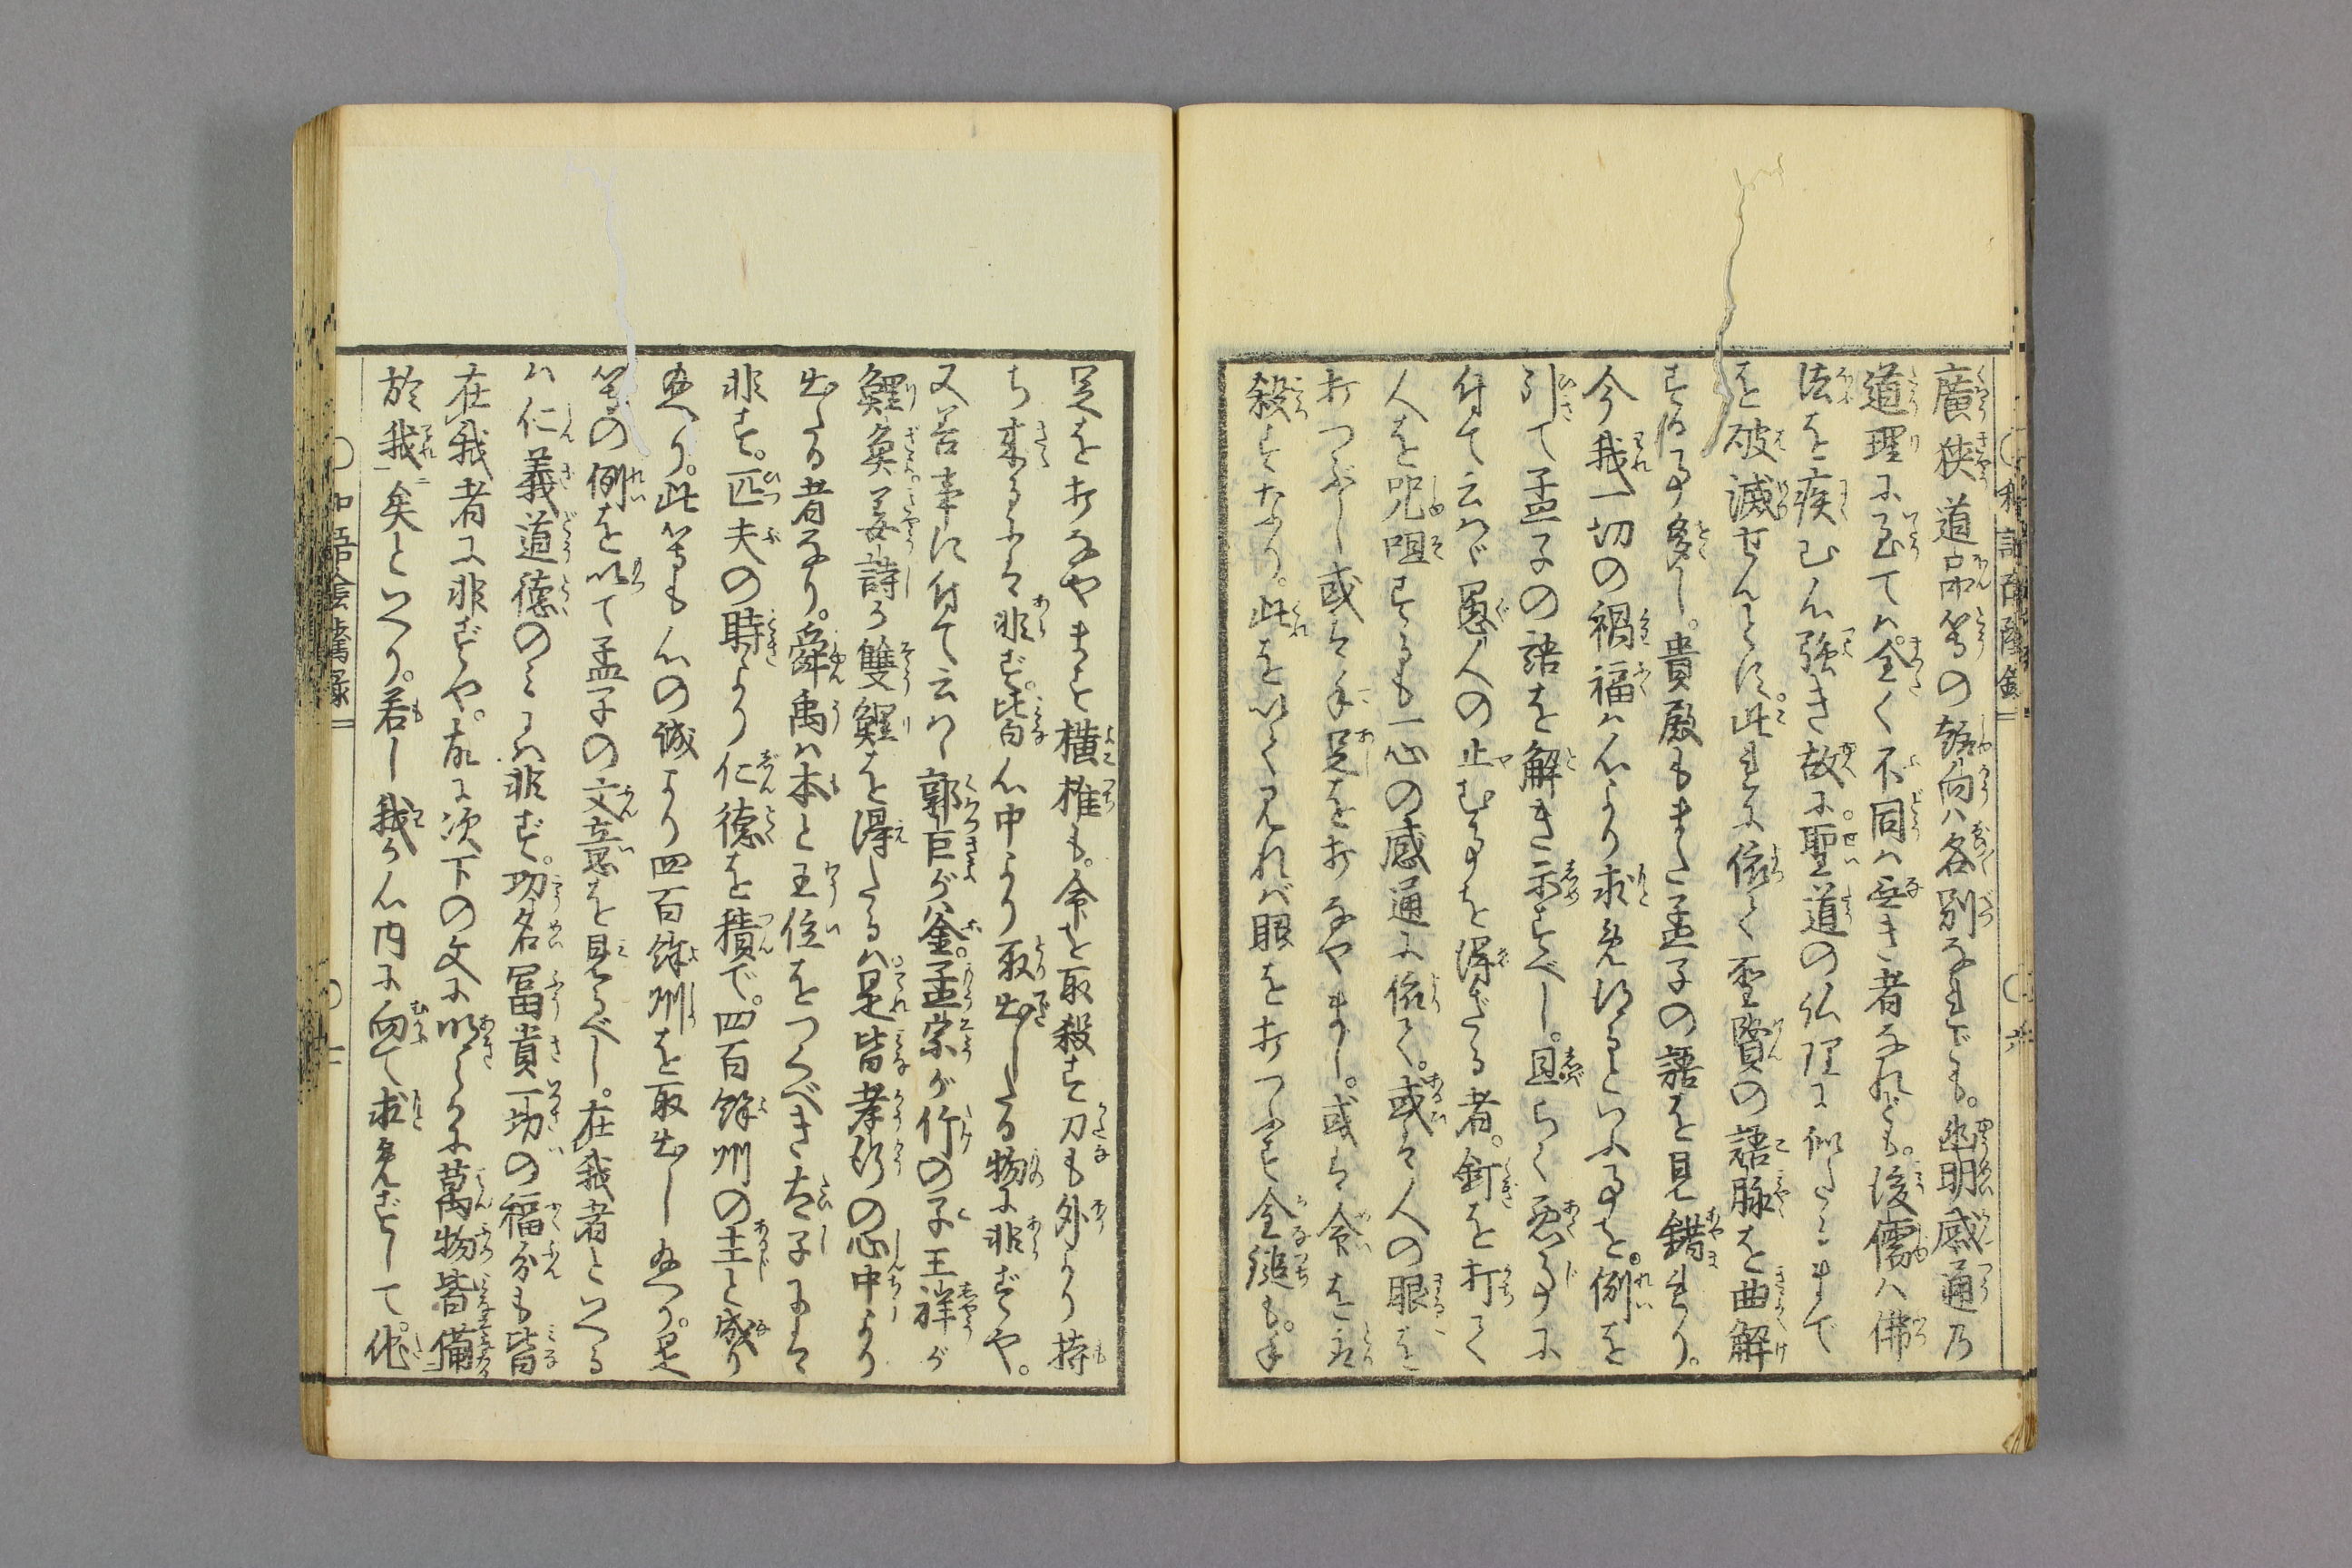 廣狭道品等の趣向ハ各別なれども。幽明感通乃
道理に至てハ全く不同ハ無き者なれども。後儒ハ佛
法を疾む心強き故に。聖道の仏理に似たるまで
を破滅せんとす。此れに依て聖賢の語脉を曲解
する事多し。貴殿もまた孟子の語を見錯れり。
今我一切の禍福ハ心より求め得るといふ事を。例を
引て孟子の語を解き示すべし。且らく惡事に
付て云ハヾ愚人の止むを得ざる者。釘を打て
人を咒咀するも一心の感通に依て。或ハ人の眼を
打つぶし或ハ手足を打なやまし。或ハ命を取
殺すなり。此を以て見れバ眼を打つぶす金鎚も。手
足を打なやます横槌も。命を取殺す刀も外より持
ち来るにハ非ず。皆心中より取出したる物に非ずや。
又善事に付て云ハヾ郭巨が釜。孟宗が竹の子王祥が
鯉魚。姜詩が雙鯉を得たるハ是皆孝行の心中より
出たる者なり。舜禹ハ本と王位をつぐべき太子にハ
非す。匹夫の時より仁德を積で。四百餘州の主と成り
玉へり。此等も心の誠より四百餘州を取出し玉へり。是
等の例を以て孟子の文意を見るべし。在我者といへる
ハ仁義道德のミにハ非ず。功名冨貴一切の福分も皆
在我者に非ずや。故に次下の文に明らかに萬物皆備
於我矣といへり。若し我が心内に向て求めずして。他